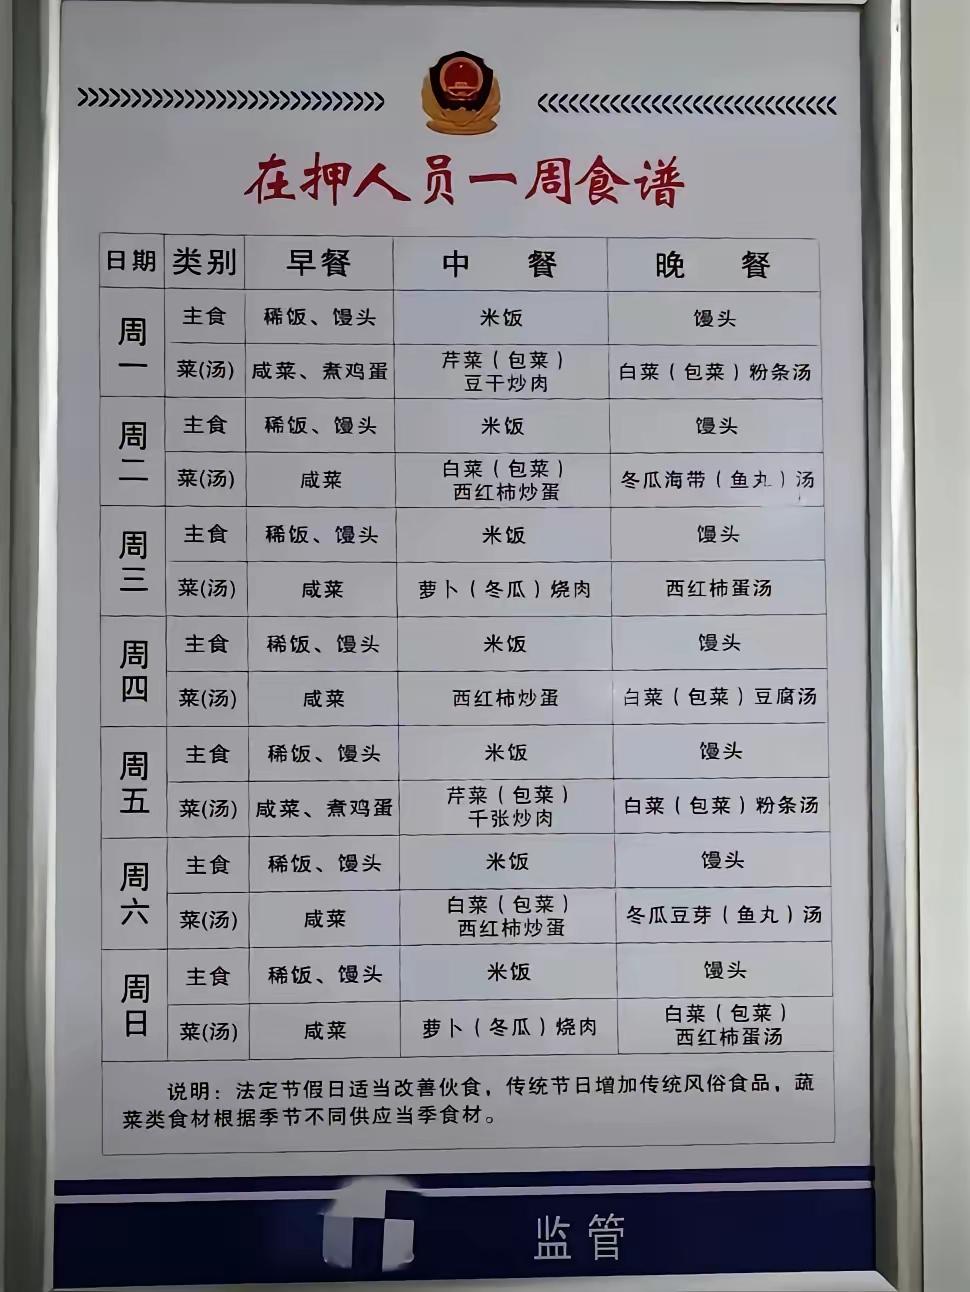 在押人员一周食谱
日期 类别 早餐 中 餐 晚 餐
周一 主食 稀饭、馒头 米饭 馒头
菜(汤) 咸菜、煮鸡蛋 芹菜（包菜） 白菜（包菜）粉条汤
豆干炒肉
周二 主食 稀饭、馒头 米饭 馒头
菜(汤) 咸菜 白菜（包菜） 冬瓜海带（鱼丸）汤
西红柿炒蛋
周三 主食 稀饭、馒头 米饭 馒头
菜(汤) 咸菜 萝卜（冬瓜）烧肉 西红柿蛋汤
周四 主食 稀饭、馒头 米饭 馒头
菜(汤) 咸菜 西红柿炒蛋 白菜（包菜）豆腐汤
周五 主食 稀饭、馒头 米饭 馒头
菜(汤) 咸菜、煮鸡蛋 芹菜（包菜） 白菜（包菜）粉条汤
千张炒肉
周六 主食 稀饭、馒头 米饭 馒头
菜(汤) 咸菜 白菜（包菜） 冬瓜豆芽（鱼丸）汤
西红柿炒蛋
周日 主食 稀饭、馒头 米饭 馒头
菜(汤) 咸菜 萝卜（冬瓜）烧肉 白菜（包菜）
西红柿蛋汤
说明：法定节假日适当改善伙食，传统节日增加传统风俗食品，蔬
菜类食材根据季节不同供应当季食材。
监管